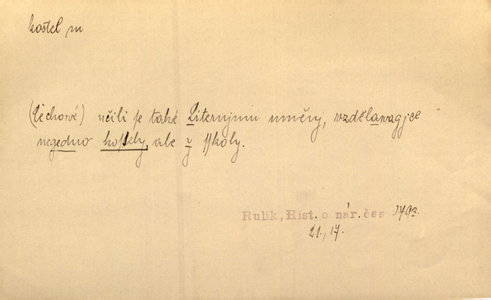 kostel m
(Čechové) učili se také Liternjmu uměnj, vzdělawagjce
negedno kostely, ale y sskoly.
Rulík, Hist. o nár. čes 1793.
21, 17.